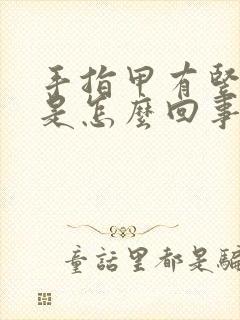 手指甲有竖
是怎麼回事
童話里都是騙